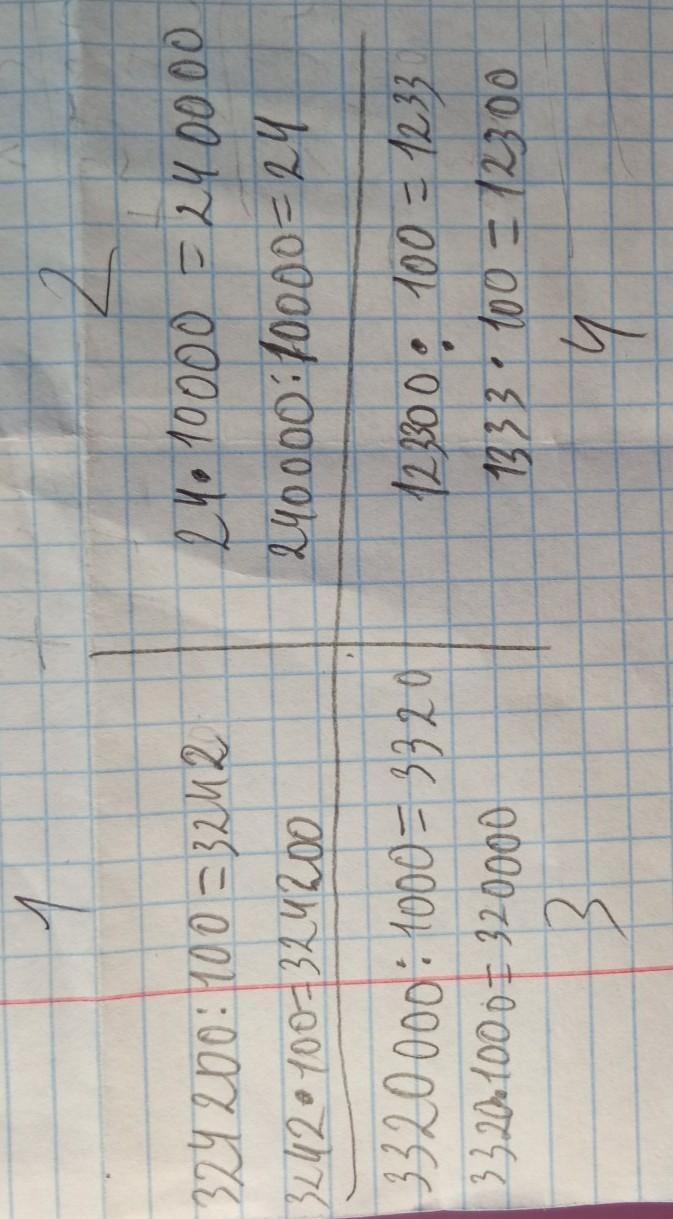 1
2
324200:100=3242
3242•100=324200
24•10000=240000
240000:10000=24
3320000:1000=3320
3320•1000=320000
12300:100=1233
1333•100=12300
3
4